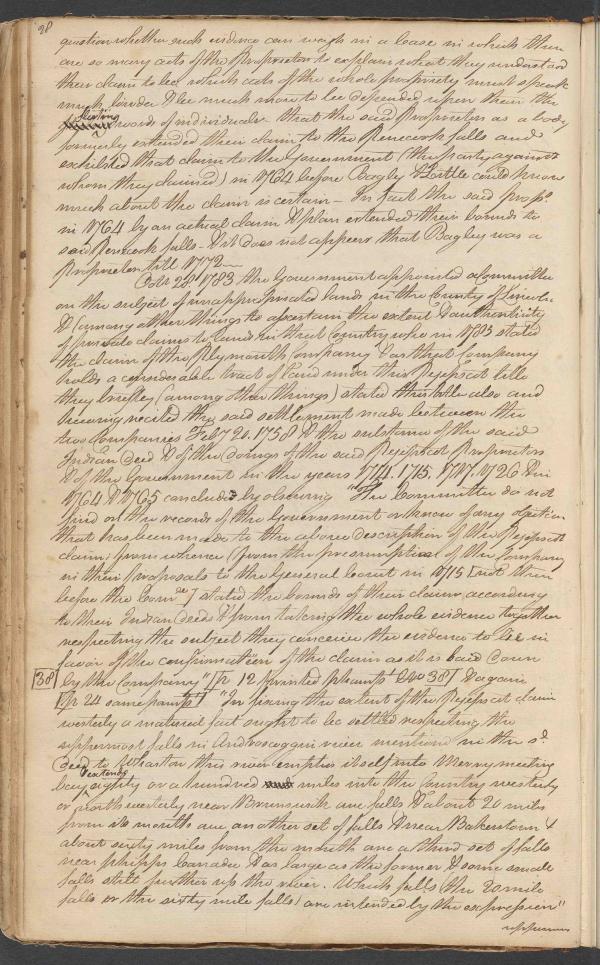 98
question whether such evidence can weigh in a case in which there
are so many acts of the Proprietors to explain what they understood
their claim to be, which acts of the whole propriety must speak
much louder & be much more to be depended upon than the
fleeting words of individuals. that the said Proprietors as a body
formerly extended their claim to the Penecook falls and
exhibited that claim to the Government (the party against
whom they claimed) in 1764 before Bagley & Little could know
much about the claim is certain – In fact the said props.
in 1764 by an actual claim & plan extended their bounds to
said Penecook falls – & it does not appear that Bagley was a
Proprietor till 1772 –
Octr. 28th 1783 the Government appointed a Committee
on the subject of unappropriated lands in the County of Lincoln
& (among other things to ascertain the extent & authenticity
of private claims to lands in that Country who in 1783 stated
the claim of the Plymouth Company & as that Company
holds a considerable tract of land under this Pejepscot title
they briefly (among other things) stated this title also and
having recited the said settlement made between the
two Companies Feby 20. 1758 & the substance of the said
Indian Deed & of the doings of the said Pejepscot Proprietors
& of the Government in the years 1714. 1715. 1717. 1726 & in
1764 & 1765 concludes by observing "The Committee do not
find on the records of the Government or know of any objection
that has been made to the above description of the Pejepscot
claim; from whence (from the presumption of the Company
in their proposals to the General Court in 1715 [not then
before the Comee.] stated the bounds of their claim according
to their Indian deeds & from taking the whole evidence together
respecting the subject they conceive the evidence to be in
favor of the confirmation of the claim as it is laid down
38 by the Company" [p 12 printed phampt No 38] & again
[p 24 same pampt] "In fixing the extent of the Pejepscot claim
westerly a natural fact ought to be settled respecting the
uppermost falls in Androscoggin river mentioned in the sd.
deed to Wharton this river empties itself into Merry meeting
bay & extends eighty or a hundred miles into the Country westerly
or northwesterly near Brunswick are falls & about 20 miles
from its mouth are another set of falls & near Bakerstown &
about sixty miles from the mouth are a third set of falls
near phipps Canada & as large as the former & some small
falls still further up the river. Which falls (the 20 mile
falls or the sixty mile falls) are intended by the expression"
uppermo